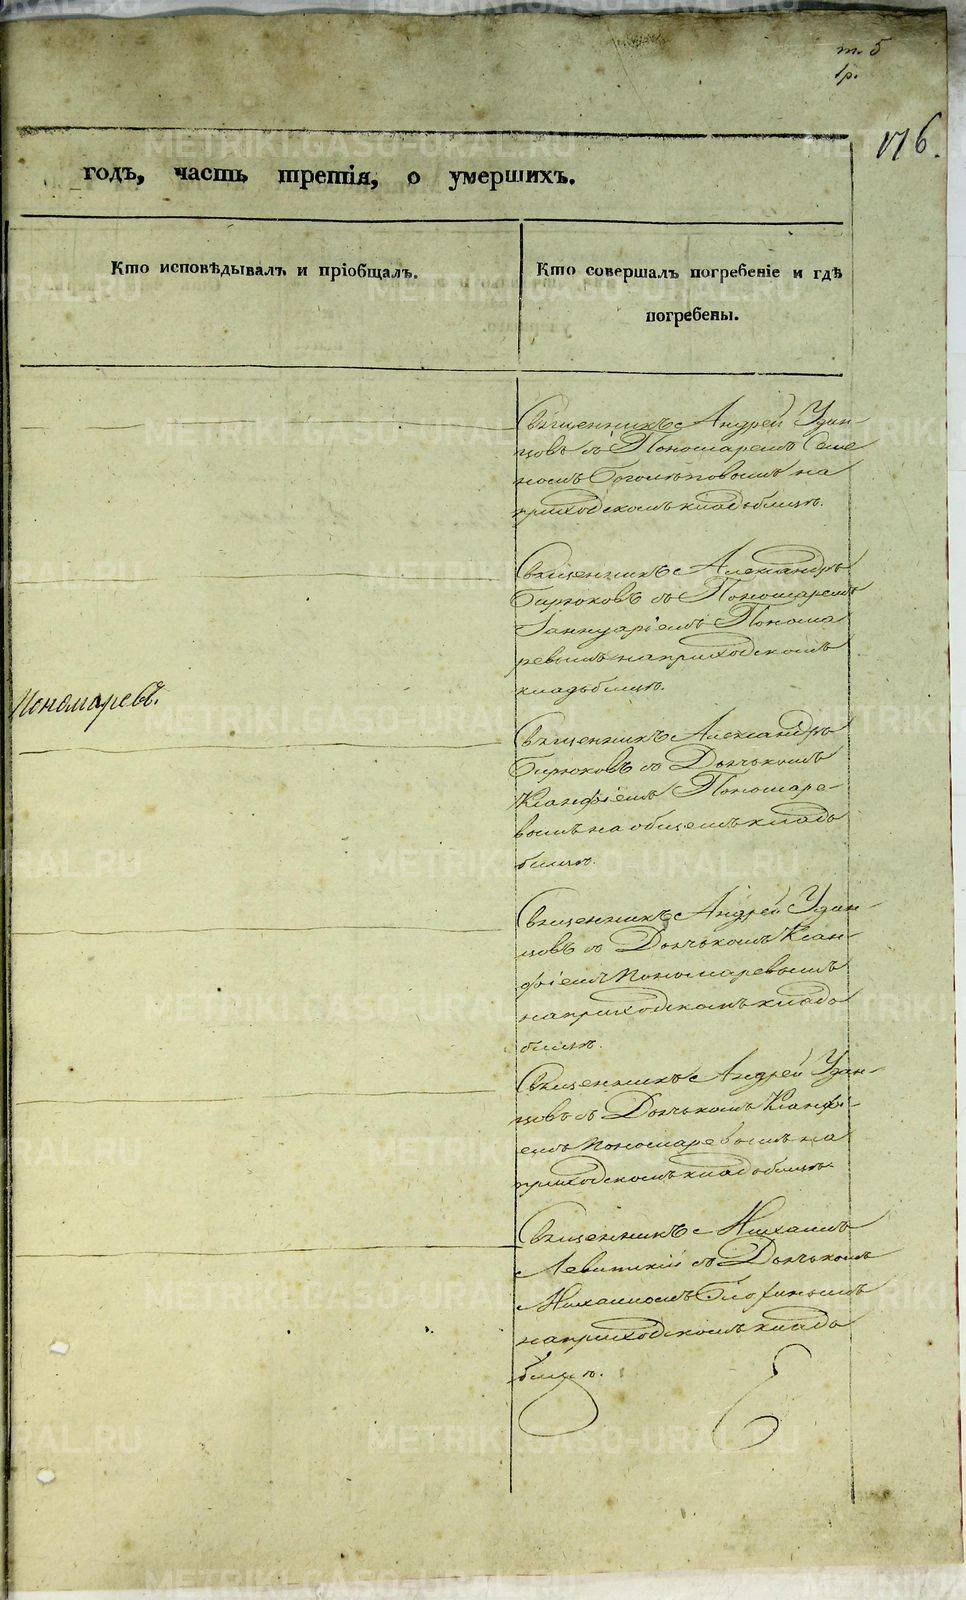 т. 5
1р.
176.
годъ, часть третія, о умершихъ.
Кто исповѣдывалъ и пріобщалъ.
Кто совершалъ погребеніе и гдѣ
погребены.
Священникъ Андрей Удин-
цовъ съ Пономаремъ Семе
номъ Боголѣповымъ на
приходскомъ кладбищѣ.
Священникъ Александръ
Бирюковъ съ Пономаремъ
Іаннуаріемъ Понома
ревымъ на приходскомъ
кладбищѣ.
Пономаревъ.
Священникъ Александръ
Бирюковъ съ Дьячькомъ
Ксанфіемъ Пономаре-
вымъ на общемъ кладь
бищѣ.
Священникъ Андрей Удин-
цовъ съ Дьячькомъ Ксан-
фіемъ Пономаревымъ
на приходскомъ кладь
бищѣ.
Священникъ Андрей Удин-
цовъ съ Дьячькомъ Ксанфі-
емъ Пономаревымъ на
приходскомъ кладбищѣ.
Священникъ Михаилъ
Левитскій съ Дьячькомъ
Михаиломъ
на приходскомъ кладь
бищѣ.
METRIKI.GASO-URAL.RU